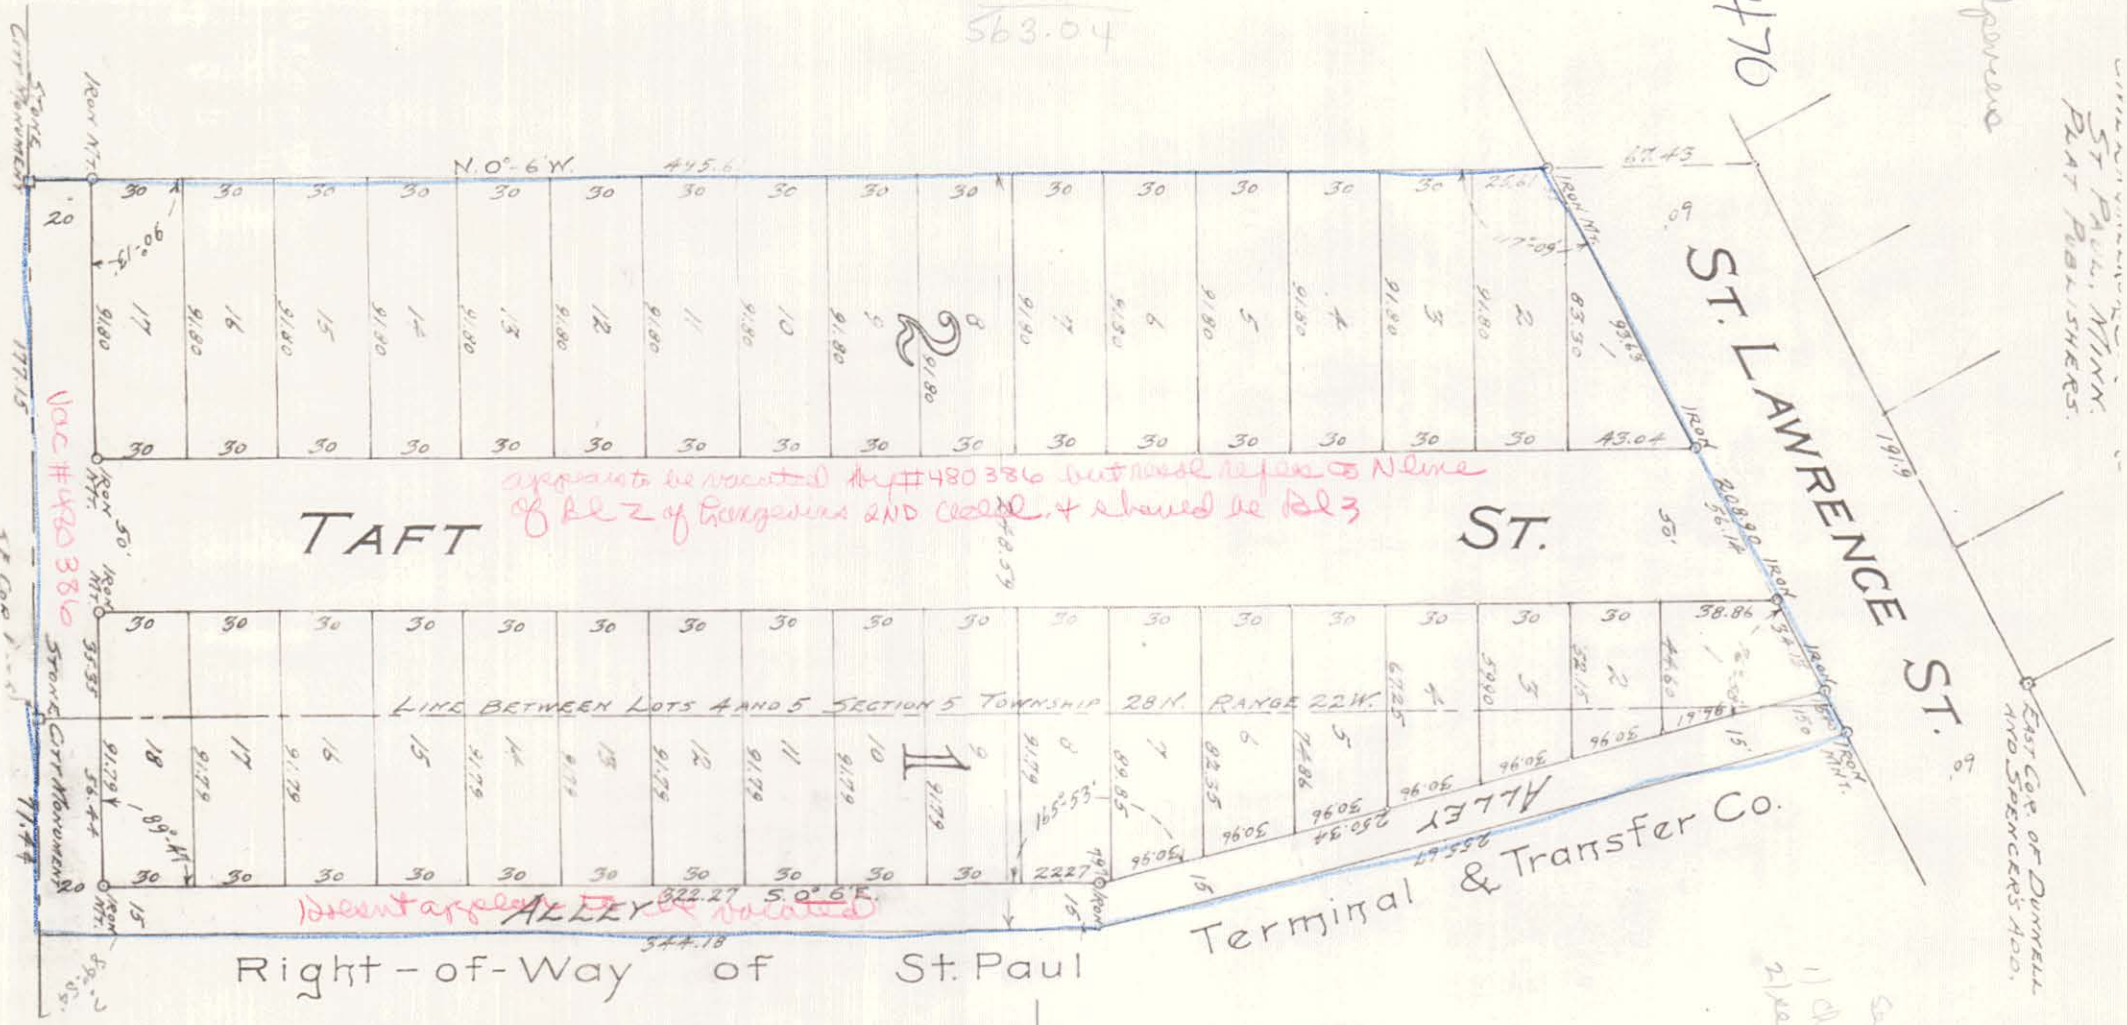 563.04
476
ST. PAUL, MINN.
PLAT PUBLISHERS.
STONE
CITY MONUMENT
IRON MT.
N. 0°-6' W. 495.6
67.43
30 30 30 30 30 30 30 30 30 30 30 30 30 30 30 25.61
IRON MT.
20'
90°-13'
60'
ST. LAWRENCE ST.
60'
191.9
177.15
91.80 17 91.80 16 91.80 15 91.80 14 91.80 13 91.80 12 91.80 11 91.80 10 91.80 9 91.80 8 91.80 7 91.80 6 91.80 5 91.80 4 91.80 3 91.80 2 83.30 1 93.63
2
30 30 30 30 30 30 30 30 30 30 30 30 30 30 30 30 43.04
IRON
IRON MT.
Vac #480386
appears to be vacated by #480386 but resol refers to N line
of Bl 2 of Gangevins 2ND and should be Bl 3
TAFT ST.
50'
50'
248.59
208.90
56.14
IRON
IRON MT.
30 30 30 30 30 30 30 30 30 30 30 30 30 30 30 30 30 38.86
35.35
34.13
IRON
LINE BETWEEN LOTS 4 AND 5 SECTION 5 TOWNSHIP 28 N. RANGE 22 W.
STONE CITY MONUMENT
91.79 18 91.79 17 91.79 16 15 91.79 14 91.79 13 91.79 12 91.79 11 91.79 10 91.79 9 91.79 8 89.85 7 82.35 6 74.86 5 67.25 4 59.90 3 52.15 2 44.60 1
1
56.44
89°-47'
165°-53'
30.96 30.96 30.96 30.96 30.96 30.96 30.96 19.61
15'
15.0
IRON MNT.
77.44
20
30 30 30 30 30 30 30 30 30 30 22.27
7.69
IRON
250.34
ALLEY
255.67
15
IRON MT.
15
322.27 S. 0° 6' E.
ALLEY
Doesnt appear to be vacated
15'
344.18
Right-of-Way of St. Paul Terminal & Transfer Co.
EAST COR. OF DUNWELL
AND SPENCER'S ADD.
1)
2)